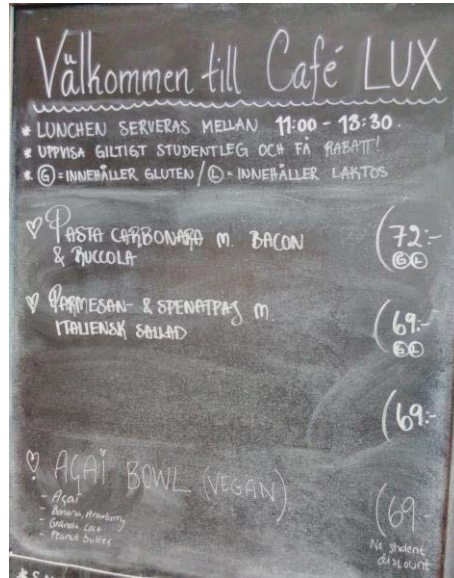 Välkommen till Café LUX
* LUNCHEN SERVERAS MELLAN 11:00 - 13:30.
* UPPVISA GILTIGT STUDENTLEG OCH FÅ RABATT!
* G = INNEHÅLLER GLUTEN / L = INNEHÅLLER LAKTOS
♡ PASTA CARBONARA M. BACON (72:-
& RUCCOLA G L
♡ PARMESAN- & SPENATPAJ M (69:-
ITALIENSK SALLAD G L
(69:-
♡ AÇAÍ BOWL (VEGAN) (69-
- Açaí
- Banana, strawberry
- Granola, coco
- Peanut butter
No student
discount